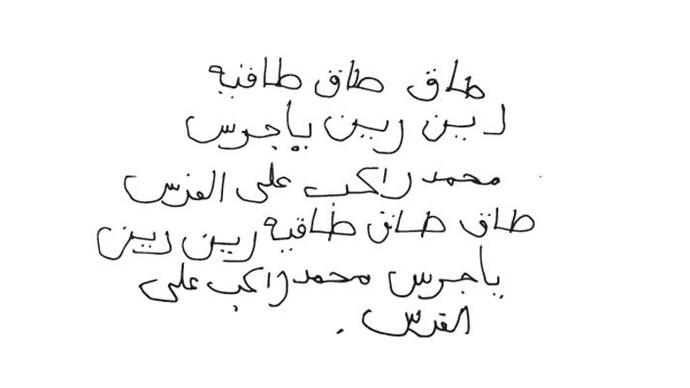 طاق طاق طاقية
رين رين ياجرس
محمد راكب على الفرس
طاق طاق طاقية رين رين
ياجرس محمد راكب على
الفرس .